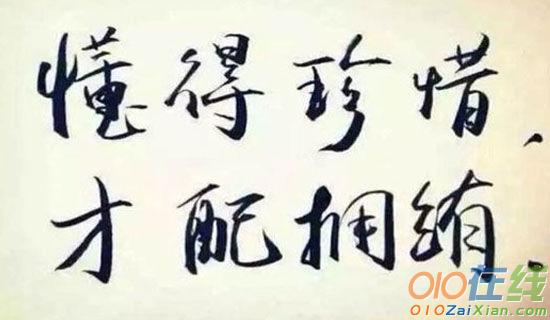 懂得珍惜、
才配拥
010在线
010ZaiXian.com